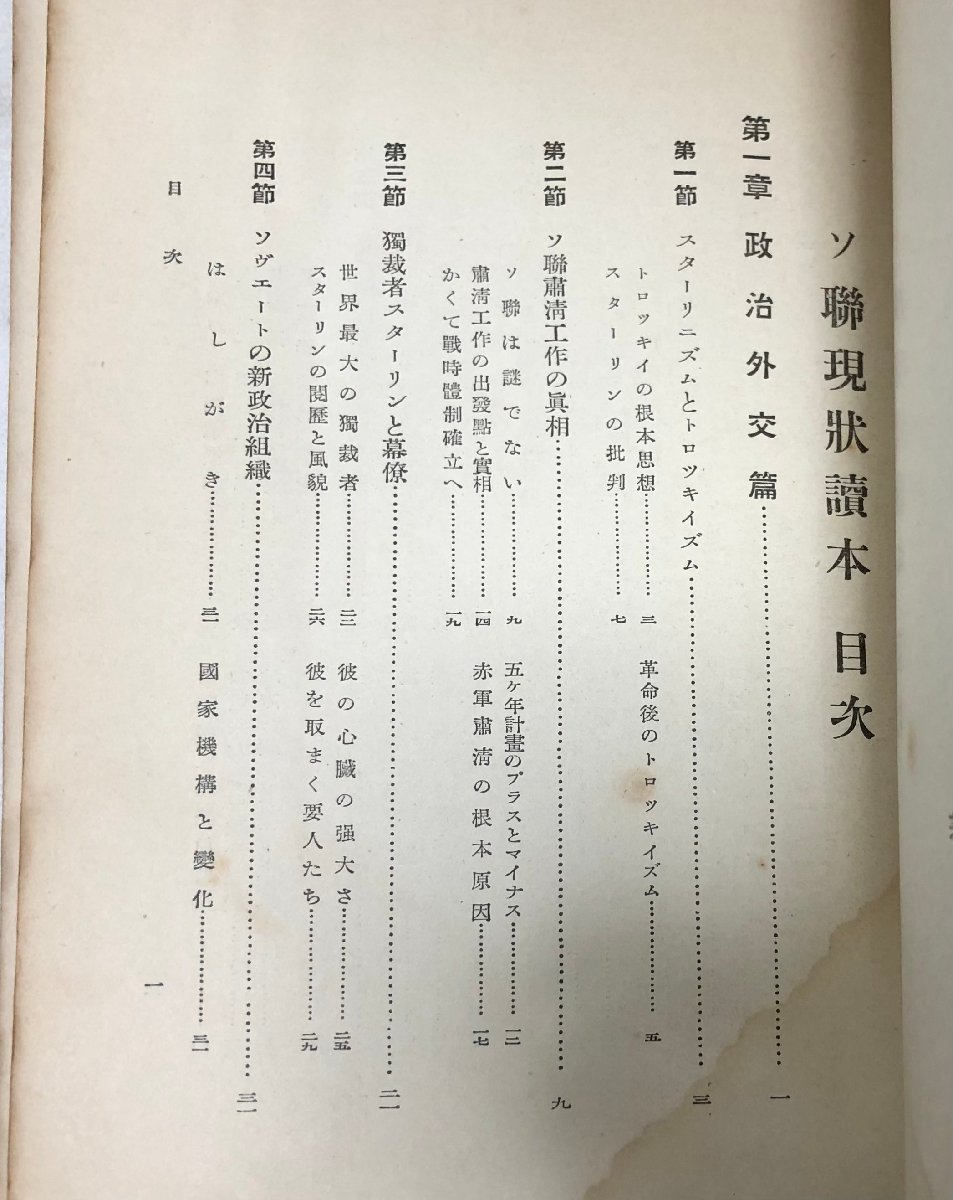 ソ聯現狀讀本 目次
第一章 政治外交篇……一
第一節 スターリニズムとトロツキイズム……三
トロツキイの根本思想……三 革命後のトロツキイズム……五
スターリンの批判……七
第二節 ソ聯肅淸工作の眞相……九
ソ聯は謎でない……九 五ケ年計畫のプラスとマイナス……一二
肅淸工作の出發點と實相……一四 赤軍肅淸の根本原因……一七
かくて戰時體制確立へ……一九
第三節 獨裁者スターリンと幕僚……二一
世界最大の獨裁者……二二 彼の心臟の强大さ……二五
スターリンの閱歷と風貌……二六 彼を取まく要人たち……二九
第四節 ソヴエートの新政治組織……三一
はしがき……三一 國家機構と變化……三一
目次 一